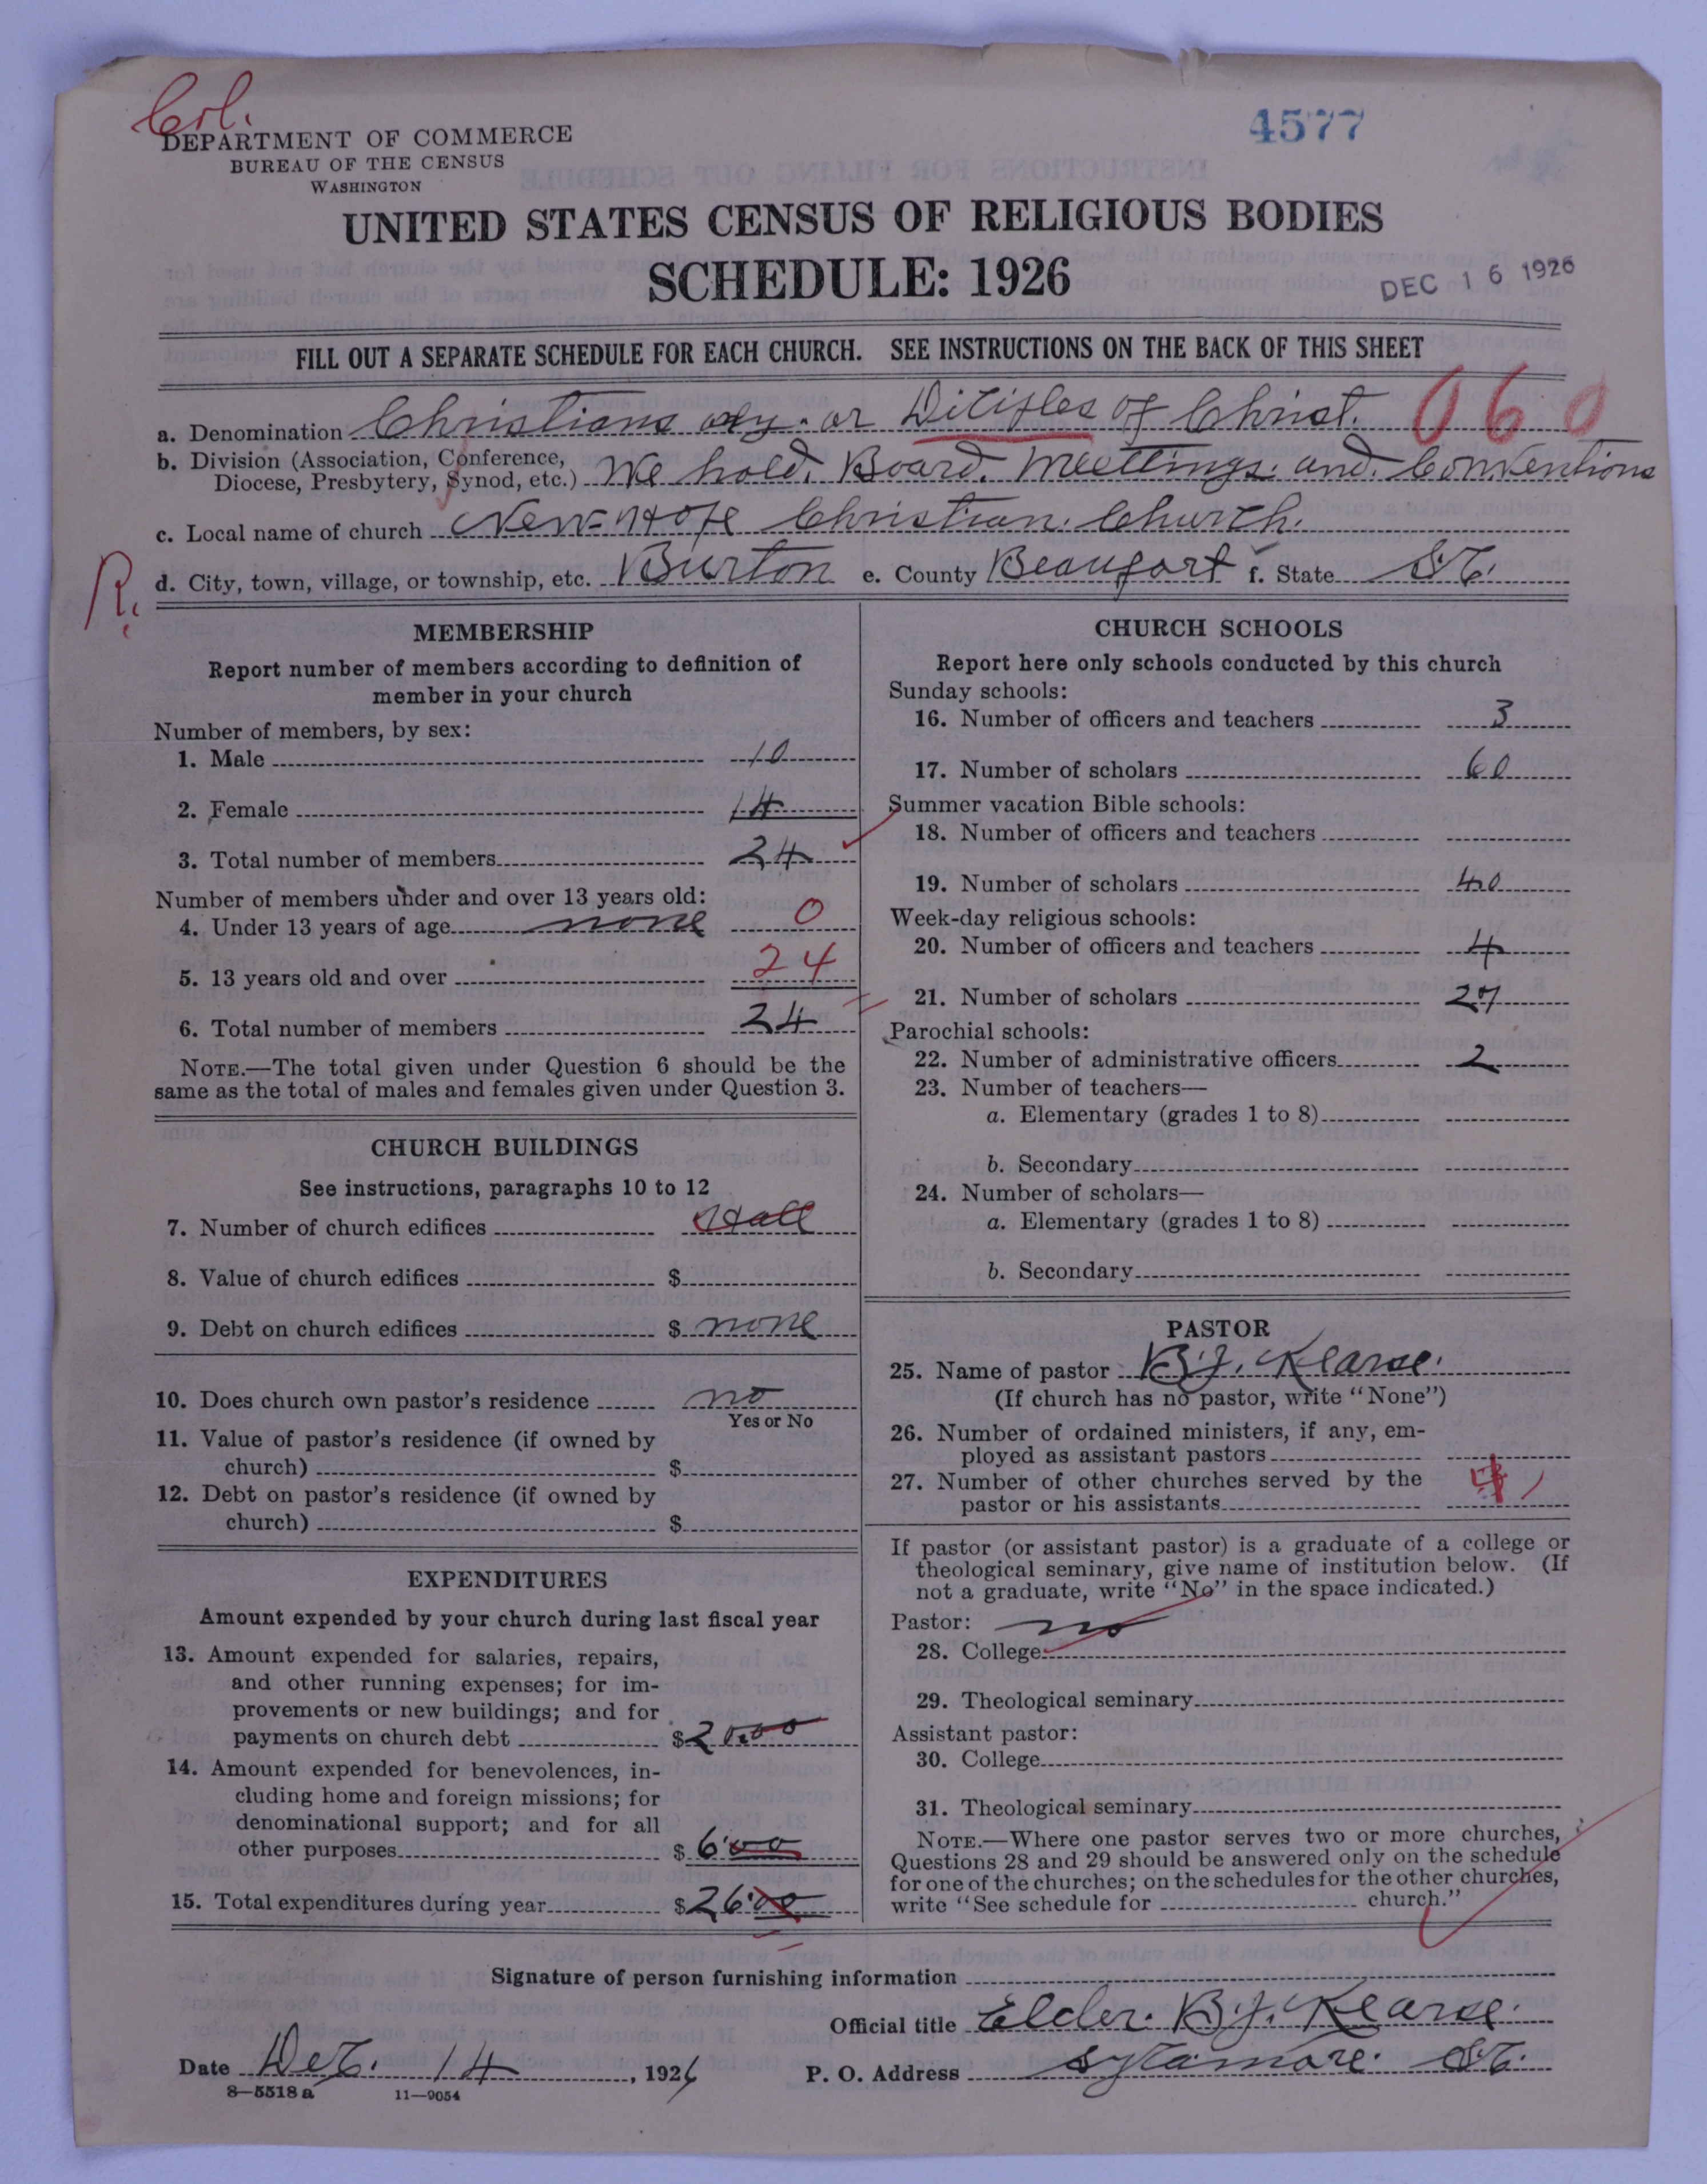 Col.
4577
DEPARTMENT OF COMMERCE
BUREAU OF THE CENSUS
WASHINGTON
UNITED STATES CENSUS OF RELIGIOUS BODIES
SCHEDULE: 1926
DEC 16 1926
FILL OUT A SEPARATE SCHEDULE FOR EACH CHURCH. SEE INSTRUCTIONS ON THE BACK OF THIS SHEET
a. Denomination Christians only. or Diciples of Christ. 060
b. Division (Association, Conference, Diocese, Presbytery, Synod, etc.) We hold. Board. Meettings. and. Conventions
c. Local name of church New-Hope Christian. Church.
R.
d. City, town, village, or township, etc. Burton e. County Beaufort f. State S.C.
MEMBERSHIP
Report number of members according to definition of
member in your church
Number of members, by sex:
1. Male 10
2. Female 14
3. Total number of members 24
Number of members under and over 13 years old:
4. Under 13 years of age none 0
5. 13 years old and over 24
6. Total number of members 24
NOTE.—The total given under Question 6 should be the
same as the total of males and females given under Question 3.
CHURCH BUILDINGS
See instructions, paragraphs 10 to 12
7. Number of church edifices Hall
8. Value of church edifices $
9. Debt on church edifices $ none
10. Does church own pastor's residence no
Yes or No
11. Value of pastor's residence (if owned by
church) $
12. Debt on pastor's residence (if owned by
church) $
EXPENDITURES
Amount expended by your church during last fiscal year
13. Amount expended for salaries, repairs,
and other running expenses; for im-
provements or new buildings; and for
payments on church debt $20.00
14. Amount expended for benevolences, in-
cluding home and foreign missions; for
denominational support; and for all
other purposes $ 6.00
15. Total expenditures during year $26.00
CHURCH SCHOOLS
Report here only schools conducted by this church
Sunday schools:
16. Number of officers and teachers 3
17. Number of scholars 60
Summer vacation Bible schools:
18. Number of officers and teachers
19. Number of scholars 40
Week-day religious schools:
20. Number of officers and teachers 4
21. Number of scholars
Parochial schools:
22. Number of administrative officers 2
23. Number of teachers—
a. Elementary (grades 1 to 8)
b. Secondary
24. Number of scholars—
a. Elementary (grades 1 to 8)
b. Secondary
PASTOR
25. Name of pastor B.J. Kearse.
(If church has no pastor, write "None")
26. Number of ordained ministers, if any, em-
ployed as assistant pastors
27. Number of other churches served by the
pastor or his assistants
If pastor (or assistant pastor) is a graduate of a college or
theological seminary, give name of institution below. (If
not a graduate, write "No" in the space indicated.)
Pastor: no
28. College
29. Theological seminary
Assistant pastor:
30. College
31. Theological seminary
NOTE.—Where one pastor serves two or more churches,
Questions 28 and 29 should be answered only on the schedule
for one of the churches; on the schedules for the other churches,
write "See schedule for church."
Signature of person furnishing information
Official title Elder. B.J. Kearse.
Date Dec. 14, 1926 P. O. Address Sycamore. S.C.
8—5518 a 11—9054